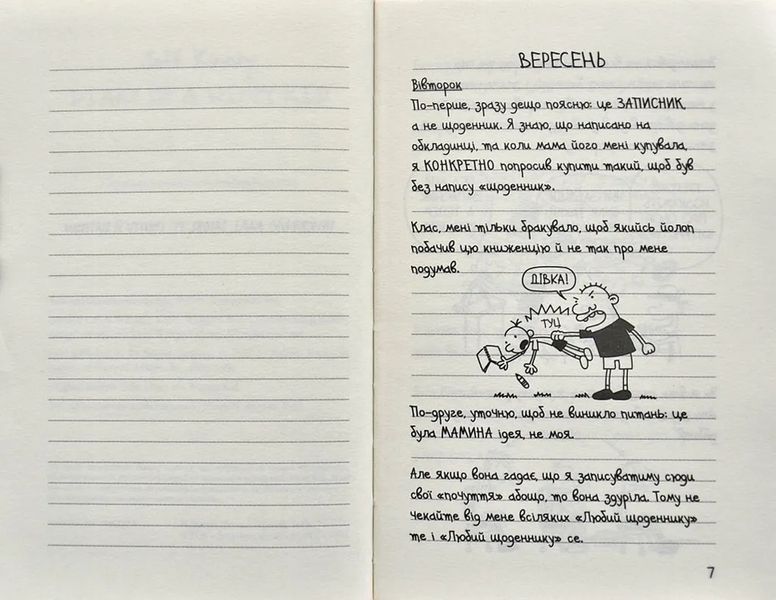 ВЕРЕСЕНЬ
Вівторок
По-перше, зразу дещо поясню: це ЗАПИСНИК,
а не щоденник. Я знаю, що написано на
обкладинці, та коли мама його мені купувала,
я КОНКРЕТНО попросив купити такий, щоб був
без напису «щоденник».
Клас, мені тільки бракувало, щоб якийсь йолоп
побачив цю книженцію й не так про мене
подумав.
ДІВКА!
ТУЦ
По-друге, уточню, щоб не виникло питань: це
була МАМИНА ідея, не моя.
Але якщо вона гадає, що я записуватиму сюди
свої «почуття» абощо, то вона здуріла. Тому не
чекайте від мене всіляких «Любий щоденнику»
те і «Любий щоденнику» се.
7